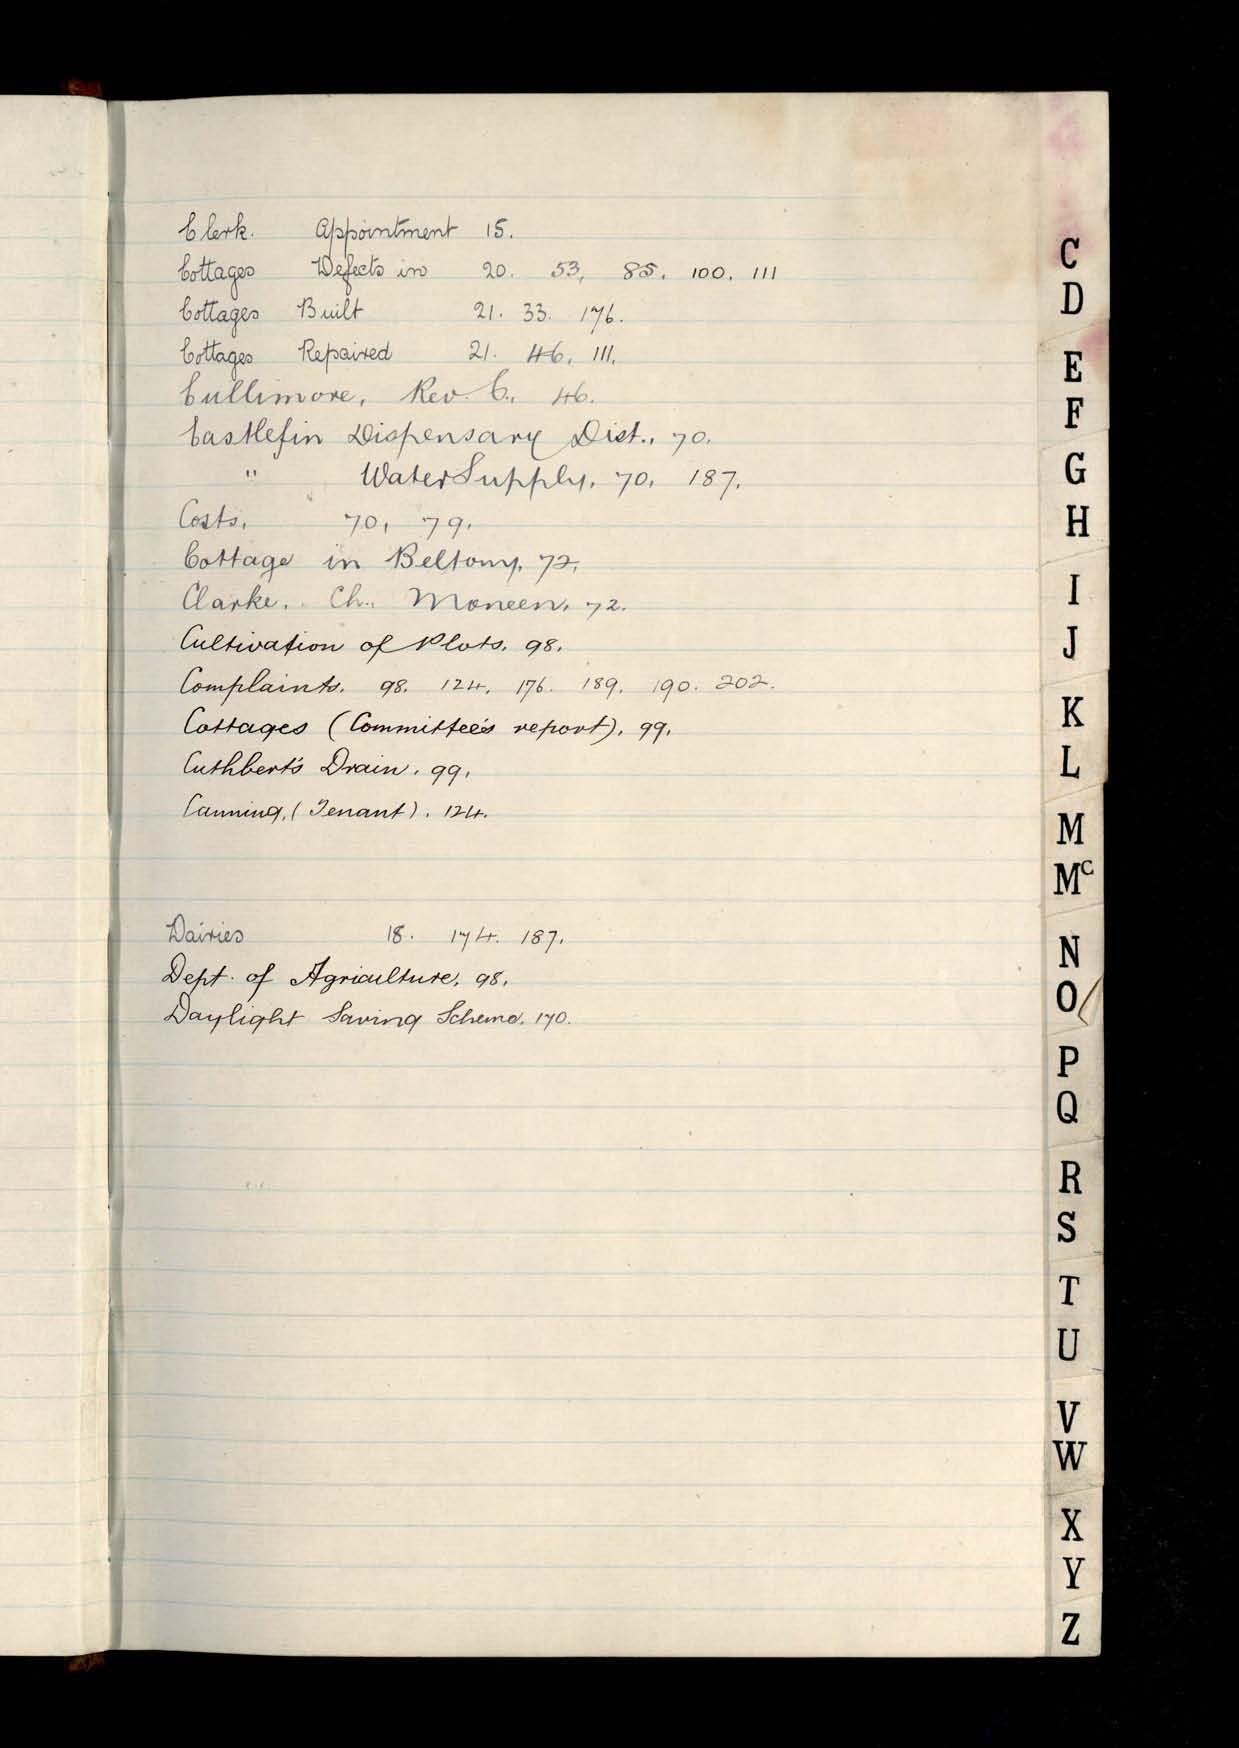 Clerk. Appointment 15.
Cottages Defects in 20. 53, 85. 100. 111
Cottages Built 21. 33. 176.
Cottages Repaired 21. 46. 111.
Cullimore, Rev. C., 46.
Castlefin Dispensary Dist., 70.
" Water Supply, 70, 187.
Costs, 70, 79.
Cottage in Beltony, 72,
Clarke, Ch., Moneen, 72.
Cultivation of Plots. 98.
Complaints. 98. 124. 176. 189. 190. 202.
Cottages (Committee's report). 99.
Cuthbert's Drain. 99.
Canning, (Tenant). 124.
Dairies 18. 174. 187.
Dept. of Agriculture. 98.
Daylight Saving Scheme. 170.
C
D
E
F
G
H
I
J
K
L
M
Mc
N
O
P
Q
R
S
T
U
V
W
X
Y
Z